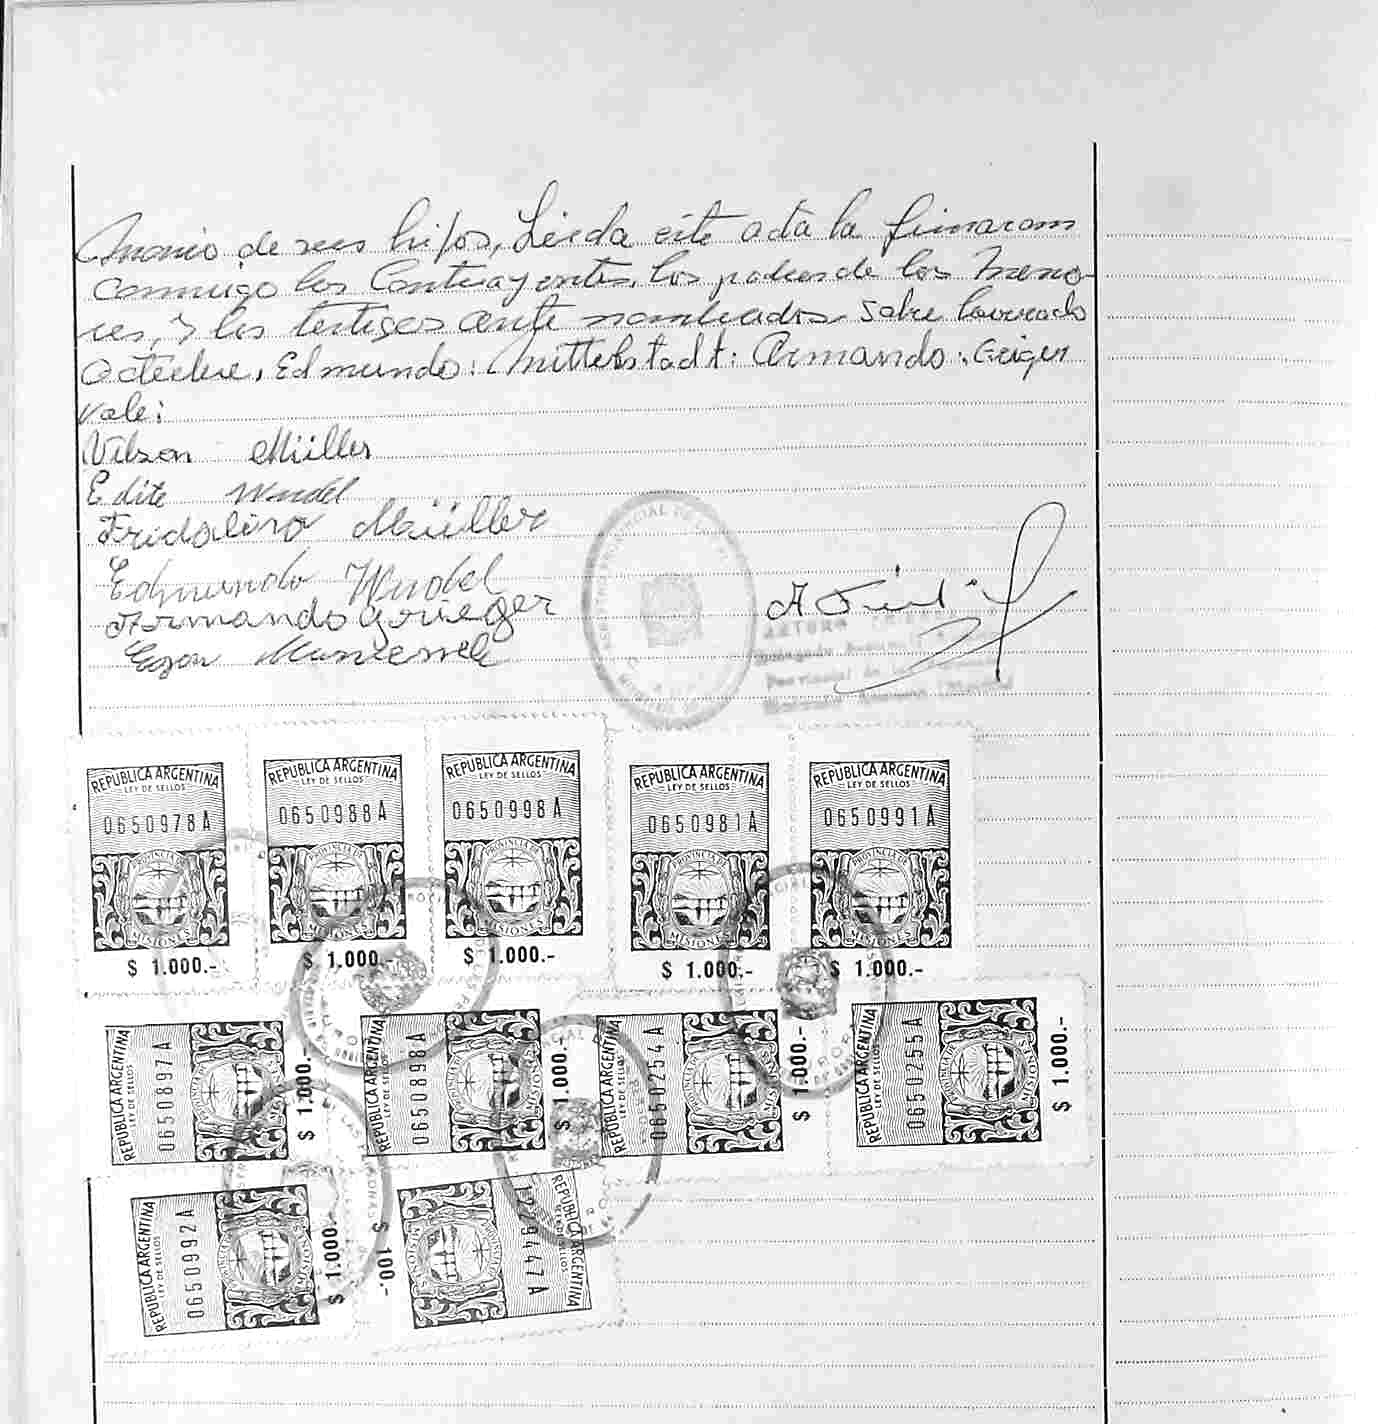 monio de sus hijos, Leida este acta la firmaron
conmigo los Contrayentes, los padres de los Meno-
res, y los testigos ante nombrados Sobre
Octubre, Edmundo: Mittelstadt: Armando: Geiger
Vale:
Vilson Müller
Edite Wudel
Fridolino Müller
Edmundo Wudel
Armando Grieger
Egon
REPUBLICA ARGENTINA REPUBLICA ARGENTINA REPUBLICA ARGENTINA REPUBLICA ARGENTINA REPUBLICA ARGENTINA
LEY DE SELLOS LEY DE SELLOS LEY DE SELLOS LEY DE SELLOS LEY DE SELLOS
0650978A 0650988A 0650998A 0650981A 0650991A
PROVINCIA DE PROVINCIA DE PROVINCIA DE PROVINCIA DE PROVINCIA DE
MISIONES MISIONES MISIONES MISIONES MISIONES
$ 1.000.- $ 1.000.- $ 1.000.- $ 1.000.- $ 1.000.-
REPUBLICA ARGENTINA
LEY DE SELLOS
0650897A
MISIONES
$ 1.000.-
REPUBLICA ARGENTINA
LEY DE SELLOS
0650898A
MISIONES
$ 1.000.-
REPUBLICA ARGENTINA
LEY DE SELLOS
0650254A
MISIONES
$ 1.000.-
REPUBLICA ARGENTINA
LEY DE SELLOS
0650255A
PROVINCIA DE
MISIONES
$ 1.000.-
REPUBLICA ARGENTINA
LEY DE SELLOS
0650992A
PROVINCIA DE
MISIONES
$ 1.000.-
REPUBLICA ARGENTINA
LEY DE SELLOS
1229447A
MISIONES
$ 100.-